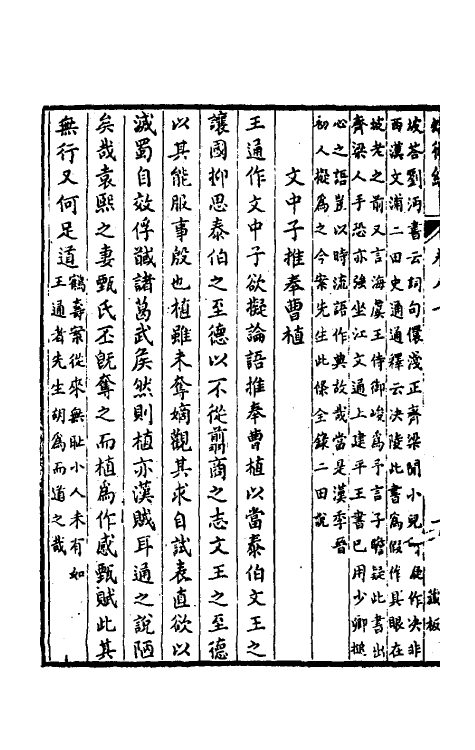 坡答劉沔書云詞句儇淺正齊梁間小兒所擬作决非
西漢文浦二田史通通釋云决陵此書為假作具眼在
坡老之前又言海虞王侍御峻為予言子瞻疑此書出
齊梁人手恐亦強坐江文通上建平王書已用少卿搥
心之語豈以時流語作典故哉當是漢季晉
初人擬為之今案先生此條全錄二田說
文中子推奉曹植
王通作文中子欲擬論語推奉曹植以當泰伯文王之
讓國抑思泰伯之至德以不從翦商之志文王之至德
以其能服事殷也植雖未奪嫡觀其求自試表直欲以
滅蜀自效俘馘諸葛武矦然則植亦漢賊耳通之說陋
矣哉袁熙之妻甄氏丕旣奪之而植爲作感甄賦此其
無行又何足道
鶴壽案從來無耻小人未有如
王通者先生胡爲而道之哉